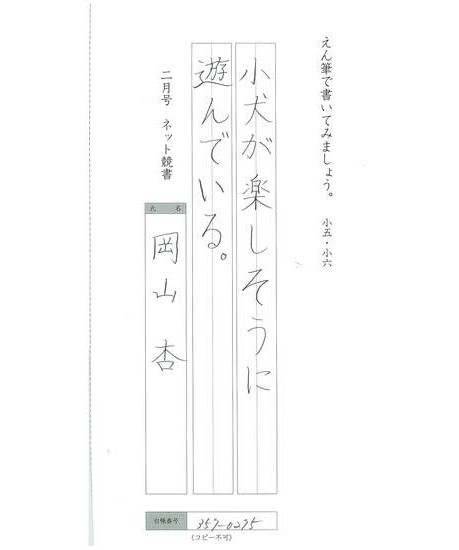 えん筆で書いてみましょう。 小五・小六
小犬が楽しそうに
遊んでいる。
二月号 ネット競書
氏名
岡山杏
台帳番号 357-0275
(コピー不可)